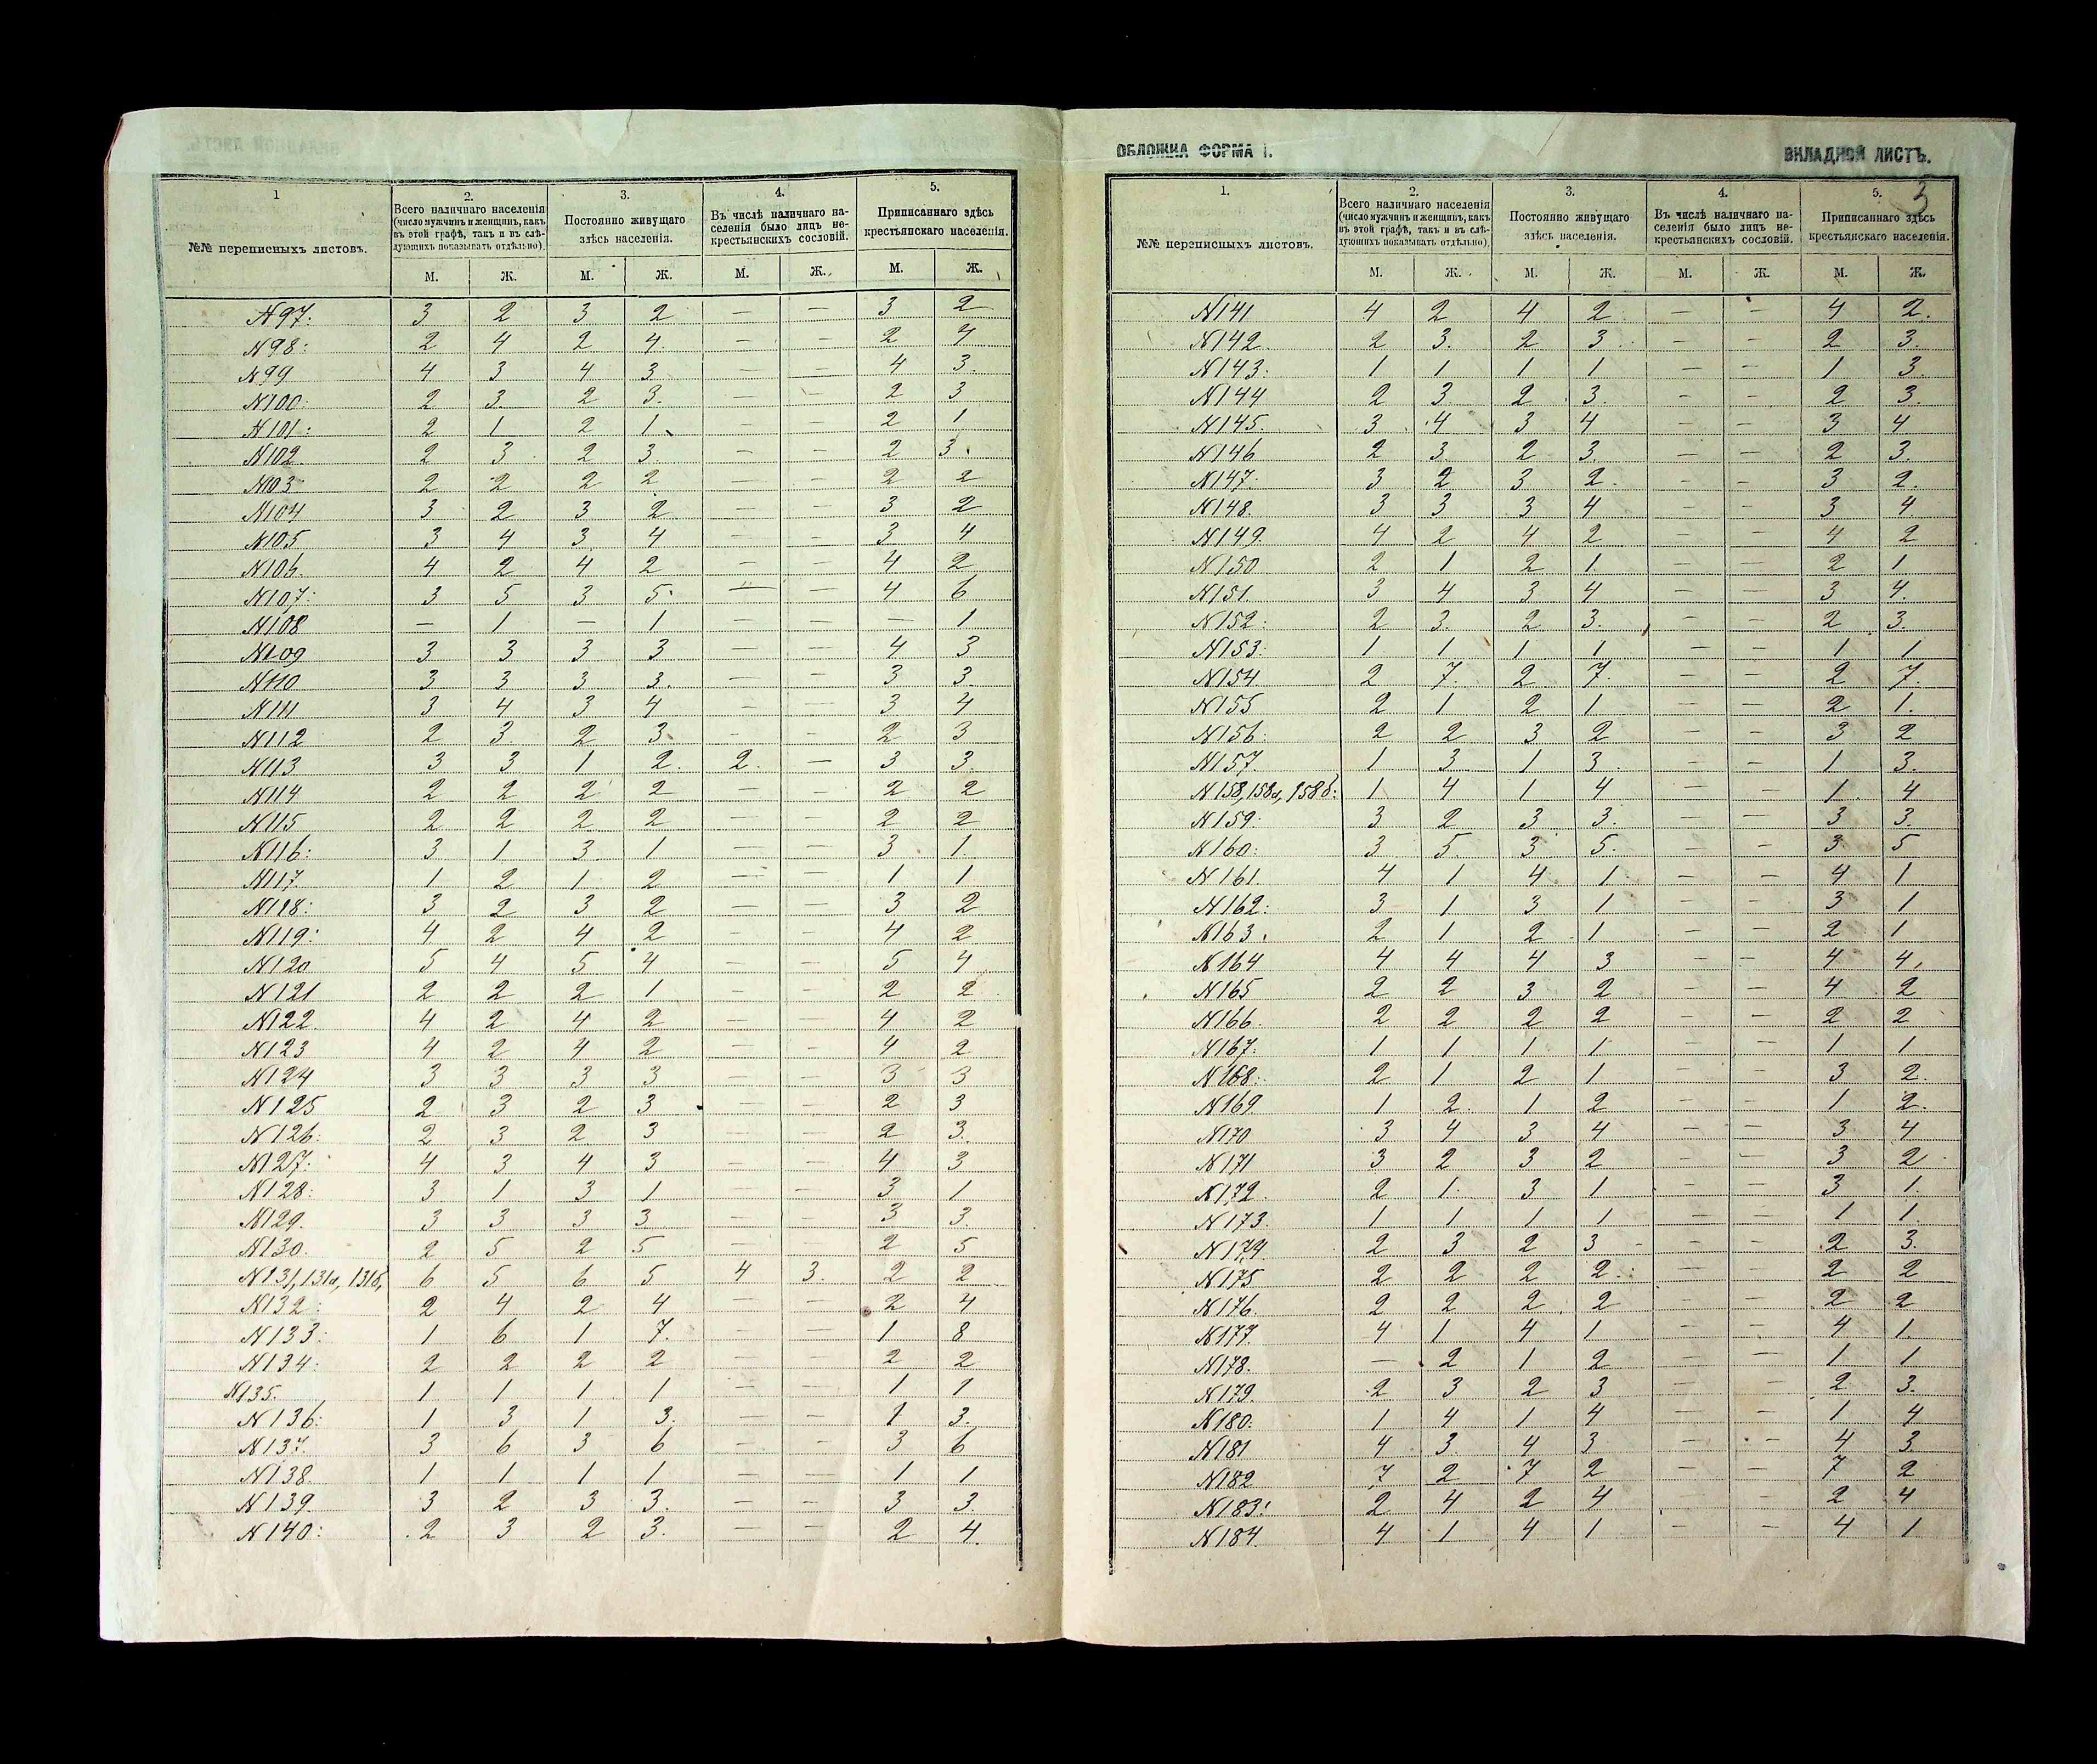 1
2.
3.
4.
5.
№№ переписныхъ листовъ.
Всего наличнаго населенія
(число мужчинъ и женщинъ, какъ
въ этой графѣ, такъ и въ слѣ-
дующихъ показывать отдѣльно).
Постоянно живущаго
здѣсь населенія.
Въ числѣ наличнаго на-
селенія было лицъ не-
крестьянскихъ сословій.
Приписаннаго здѣсь
крестьянскаго населенія.
М. Ж. М. Ж. М. Ж. М. Ж.
N97. 3 2 3 2 — — 3 2
N98: 2 4 2 4 — — 2 4
N99 4 3 4 3 — — 4 3.
N100: 2 3 2 3. — — 2 3
N101: 2 1 2 1 — — 2 1
N102 2 3 2 3 — — 2 3.
N103 2 2 2 2 — — 2 2
N104 3 2 3 2 — — 3 2
N105 3 4 3 4 — — 3 4
N106. 4 2 4 2 — — 4 2
N107: 3 5 3 5 — — 4 6
N108 — 1 — 1 — — — 1
N109 3 3 3 3 — — 4 3
N110 3 3 3 3. — — 3 3.
N111 3 4 3 4 — — 3 4
N112 2 3 2 3 — — 2 3
N113 3 3 1 2. 2. — 3 3.
N114 2 2 2 2 — — 2 2
N115 2 2 2 2 — — 2 2
N116: 3 1 3 1 — — 3 1.
N117. 1 2 1 2 — — 1 1
N118: 3 2 3 2 — — 3 2
N119: 4 2 4 2 — — 4 2
N120 5 4 5 4 — — 5 4
N121 2 2 2 1 — — 2 2
N122 4 2 4 2 — — 4 2
N123 4 2 4 2 — — 4 2
N124 3 3 3 3 — — 3 3
N125 2 3 2 3 — — 2 3
N126: 2 3 2 3 — — 2 3.
N127: 4 3 4 3 — — 4 3
N128: 3 1 3 1 — — 3 1
N129. 3 3 3 3 — — 3 3.
N130. 2 5 2 5 — — 2 5
N131, 131а, 131б, 6 5 6 5 4 3. 2 2
N132: 2 4 2 4 — — 2 4
N133: 1 6 1 7. — — 1 8
N134: 2 2 2 2 — — 2 2
N135. 1 1 1 1 — — 1 1
N136: 1 3 1 3. — — 1 3.
N137. 3 6 3 6 — — 3 6
N138. 1 1 1 1 — — 1 1
N139 3 2 3 3. — — 3 3.
N140: 2 3 2 3. — — 2 4.
ОБЛОЖКА ФОРМА I.
ВКЛАДНОЙ ЛИСТЪ.
1.
2.
3.
4.
5.
№№ переписныхъ листовъ.
Всего наличнаго населенія
(число мужчинъ и женщинъ, какъ
въ этой графѣ, такъ и въ слѣ-
дующихъ показывать отдѣльно).
Постоянно живущаго
здѣсь населенія.
Въ числѣ наличнаго на-
селенія было лицъ не-
крестьянскихъ сословій.
Приписаннаго здѣсь
крестьянскаго населенія.
М. Ж. М. Ж. М. Ж. М. Ж.
N141 4 2 4 2 — — 4 2.
N142 2 3. 2 3 — — 2 3.
N143: 1 1 1 1 — — 1 3.
N144 2 3 2 3. — — 2 3.
N145. 3 4 3 4 — — 3 4
N146 2 3 2 3. — — 2 3.
N147. 3 2 3 2. — — 3 2.
N148. 3 3 3 4 — — 3 4
N149. 4 2 4 2 — — 4 2
N150 2 1 2 1 — — 2 1
N151. 3 4 3 4 — — 3 4.
N152: 2 3. 2 3. — — 2 3.
N153: 1 1 1 1 — — 1 1
N154 2 7. 2 7. — — 2 7.
N155 2 1 2 1 — — 2 1.
N156: 2 2 3 2 — — 3 2
N157 1 3 1 3. — — 1 3.
N158, 158а, 158б: 1 4 1 4 — — 1 4
N159: 3 2 3 3. — — 3 3.
N160: 3 5. 3 5. — — 3 5
N161. 4 1 4 1 — — 4 1
N162: 3 1 3 1 — — 3 1
N163. 2 1 2 1 — — 2 1
N164 4 4 4 3 — — 4 4.
N165 2 2 3 2 — — 4 2
N166. 2 2 2 2 — — 2 2
N167: 1 1 1 1 — — 1 1
N168: 2 1 2 1 — — 3 2.
N169 1 2 1 2 — — 1 2.
N170 3 4 3 4 — — 3 4
N171 3 2 3 2 — — 3 2
N172. 2 1. 3 1 — — 3 1.
N173. 1 1 1 1 — — 1 1.
N174. 2 3 2 3 — — 2 3.
N175 2 2 2 2. — — 2 2
N176. 2 2 2 2 — — 2 2
N177. 4 1 4 1 — — 4 1.
N178. — 2 1 2 — — 1 1
N179. 2 3 2 3 — — 2 3.
N180: 1 4 1 4 — — 1 4
N181 4 3 4 3 — — 4 3
N182 7 2 7 2 — — 7 2
N183: 2 4 2 4 — 2 4
N184. 4 1 4 1 — — 4 1